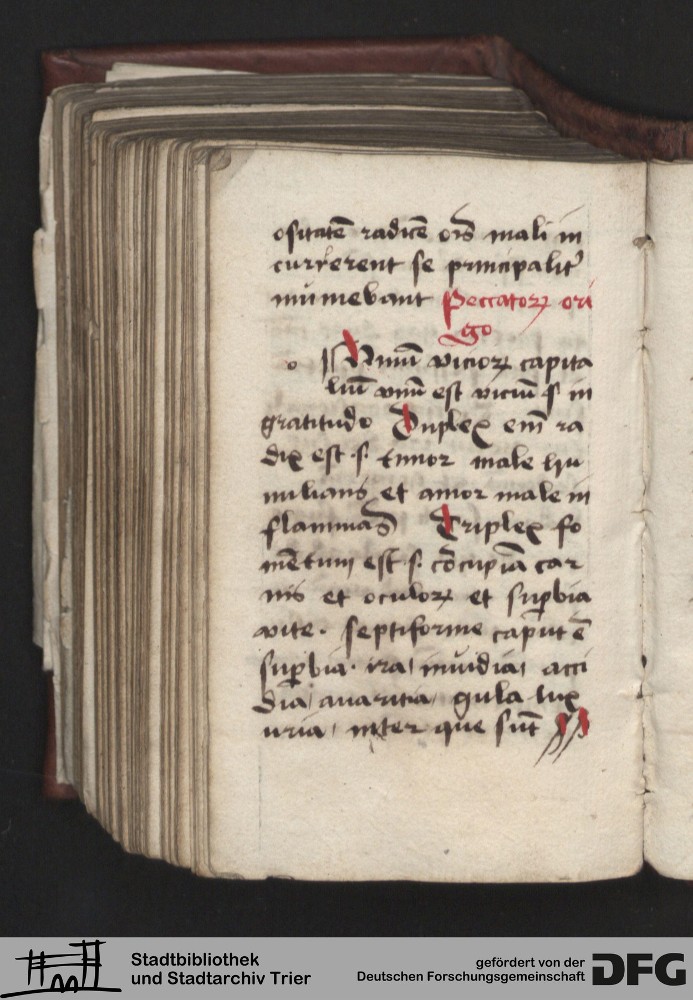 ositatē radicē oīs mali in
currerent se principalit᷑
muniebant Peccatoꝝ ori
go
o Omniū vicioꝝ capita
liū vnū est viciū s in
gratitudo Duplex enī ra
dix est .s. timor male hu
milians et amor male in
flammās Triplex fo
mētum est .s. cōcupia car
nis et oculoꝝ et suꝑbia
vite . septiforme caput ē
suꝑbia . ira / inuidia / acci
dia / auaritia / gula lux
uria / inter que sūt
Stadtbibliothek
und Stadtarchiv Trier
gefördert von der
Deutschen Forschungsgemeinschaft
DFG